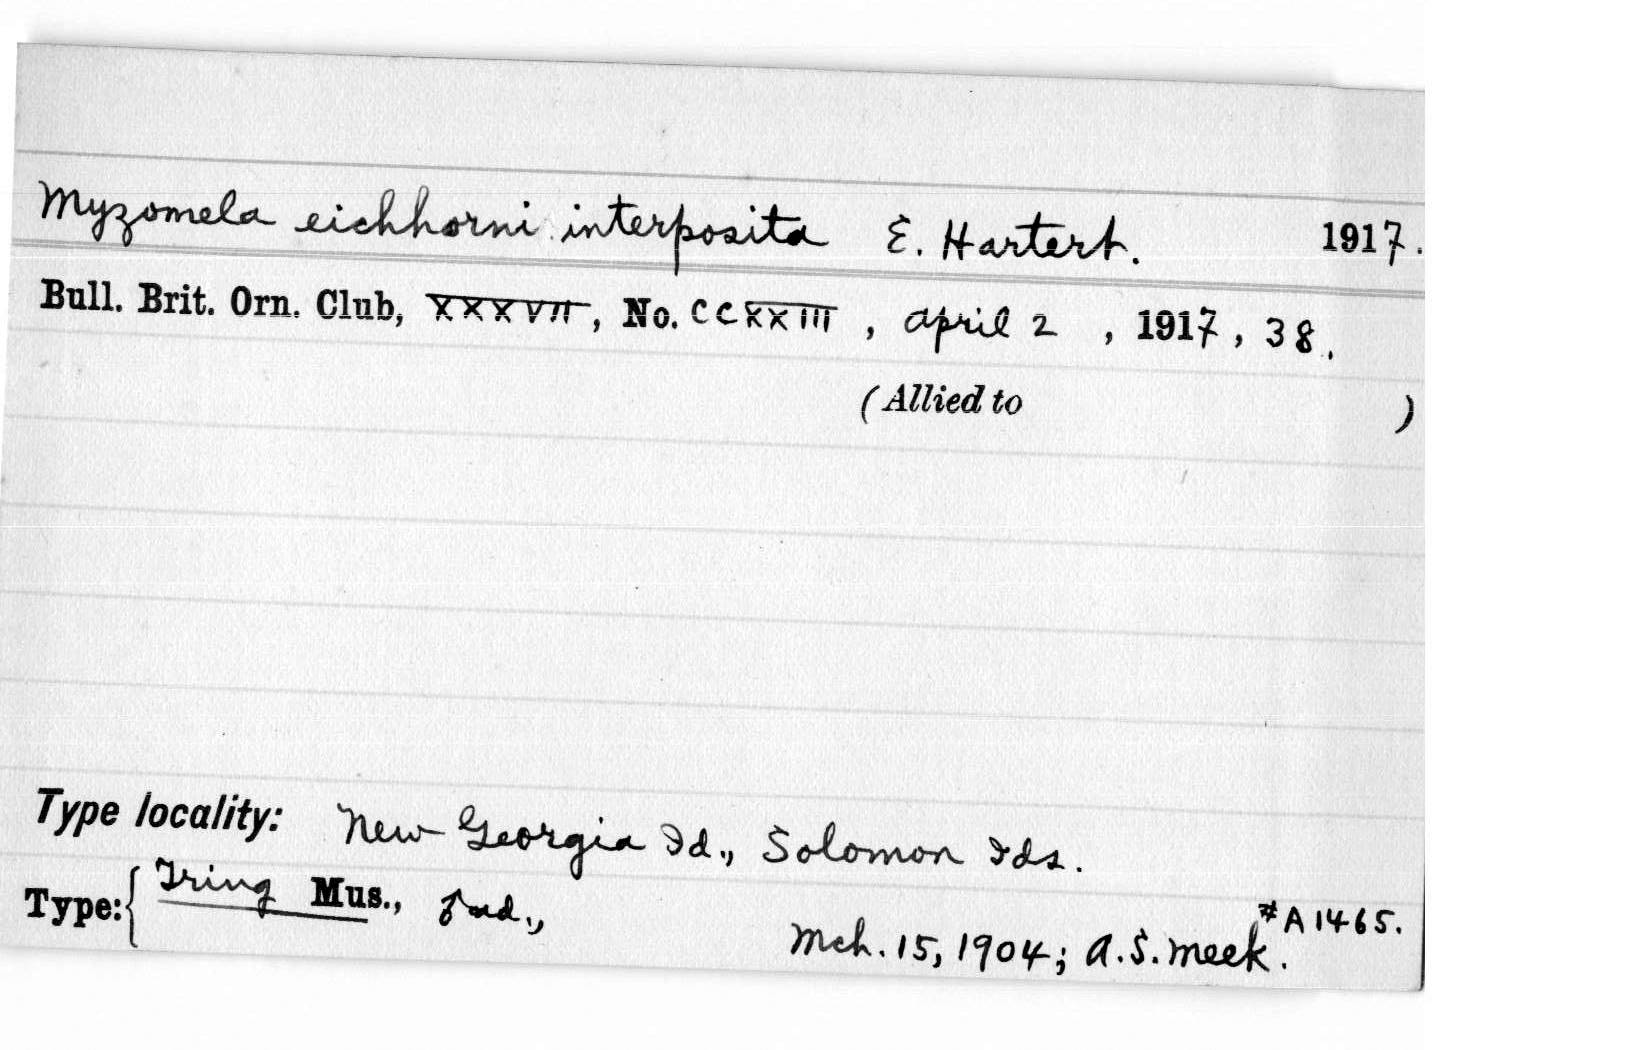 Myzomela eichhorni interposita E. Hartert. 1917.
Bull. Brit. Orn. Club, XXXVII, No. CCXXIII, April 2, 1917, 38.
(Allied to )
Type locality: New Georgia Id., Solomon Ids.
Type: { Tring Mus., ♂ ad., #A1465.
Mch. 15, 1904; A.S. Meek.